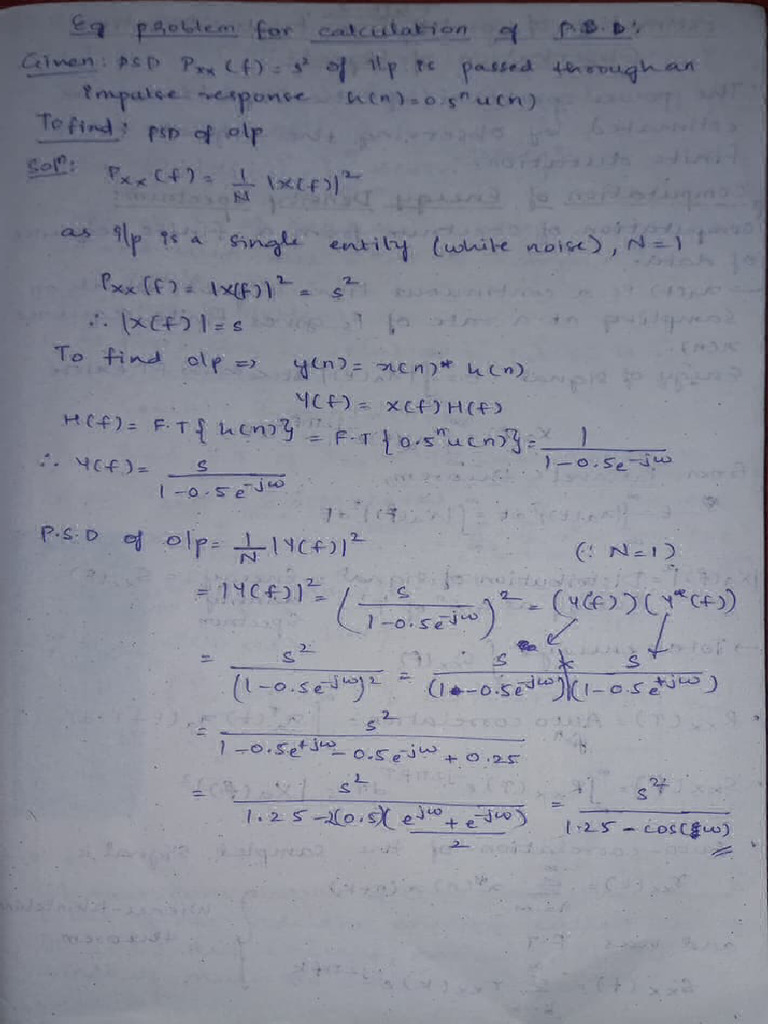 Eg problem for calculation of P.S.D:
Given: PSD Pxx(f) = s² of i/p is passed through an
impulse response h(n)=0.5ⁿu(n)
To find: PSD of o/p
Solⁿ:
Pxx(f) = 1/N |X(f)|²
as i/p is a single entity (white noise), N=1
Pxx(f) = |X(f)|² = s²
∴ |X(f)| = s
To find o/p => y(n) = x(n)* h(n)
Y(f) = X(f)H(f)
H(f) = F.T{h(n)} = F.T{0.5ⁿu(n)} = 1/(1-0.5e^-jω)
∴ Y(f) = s/(1-0.5e^-jω)
P.S.D of o/p = 1/N |Y(f)|² (∵ N=1)
= |Y(f)|² = (s/(1-0.5e^-jω))² = (Y(f))(Y*(f))
= s²/(1-0.5e^-jω)² = s/(1-0.5e^-jω) × s/(1-0.5e^+jω)
= s²/(1-0.5e^+jω - 0.5e^-jω + 0.25)
= s²/(1.25-2(0.5)(e^jω + e^-jω)/2) = s²/(1.25-cos(ω))